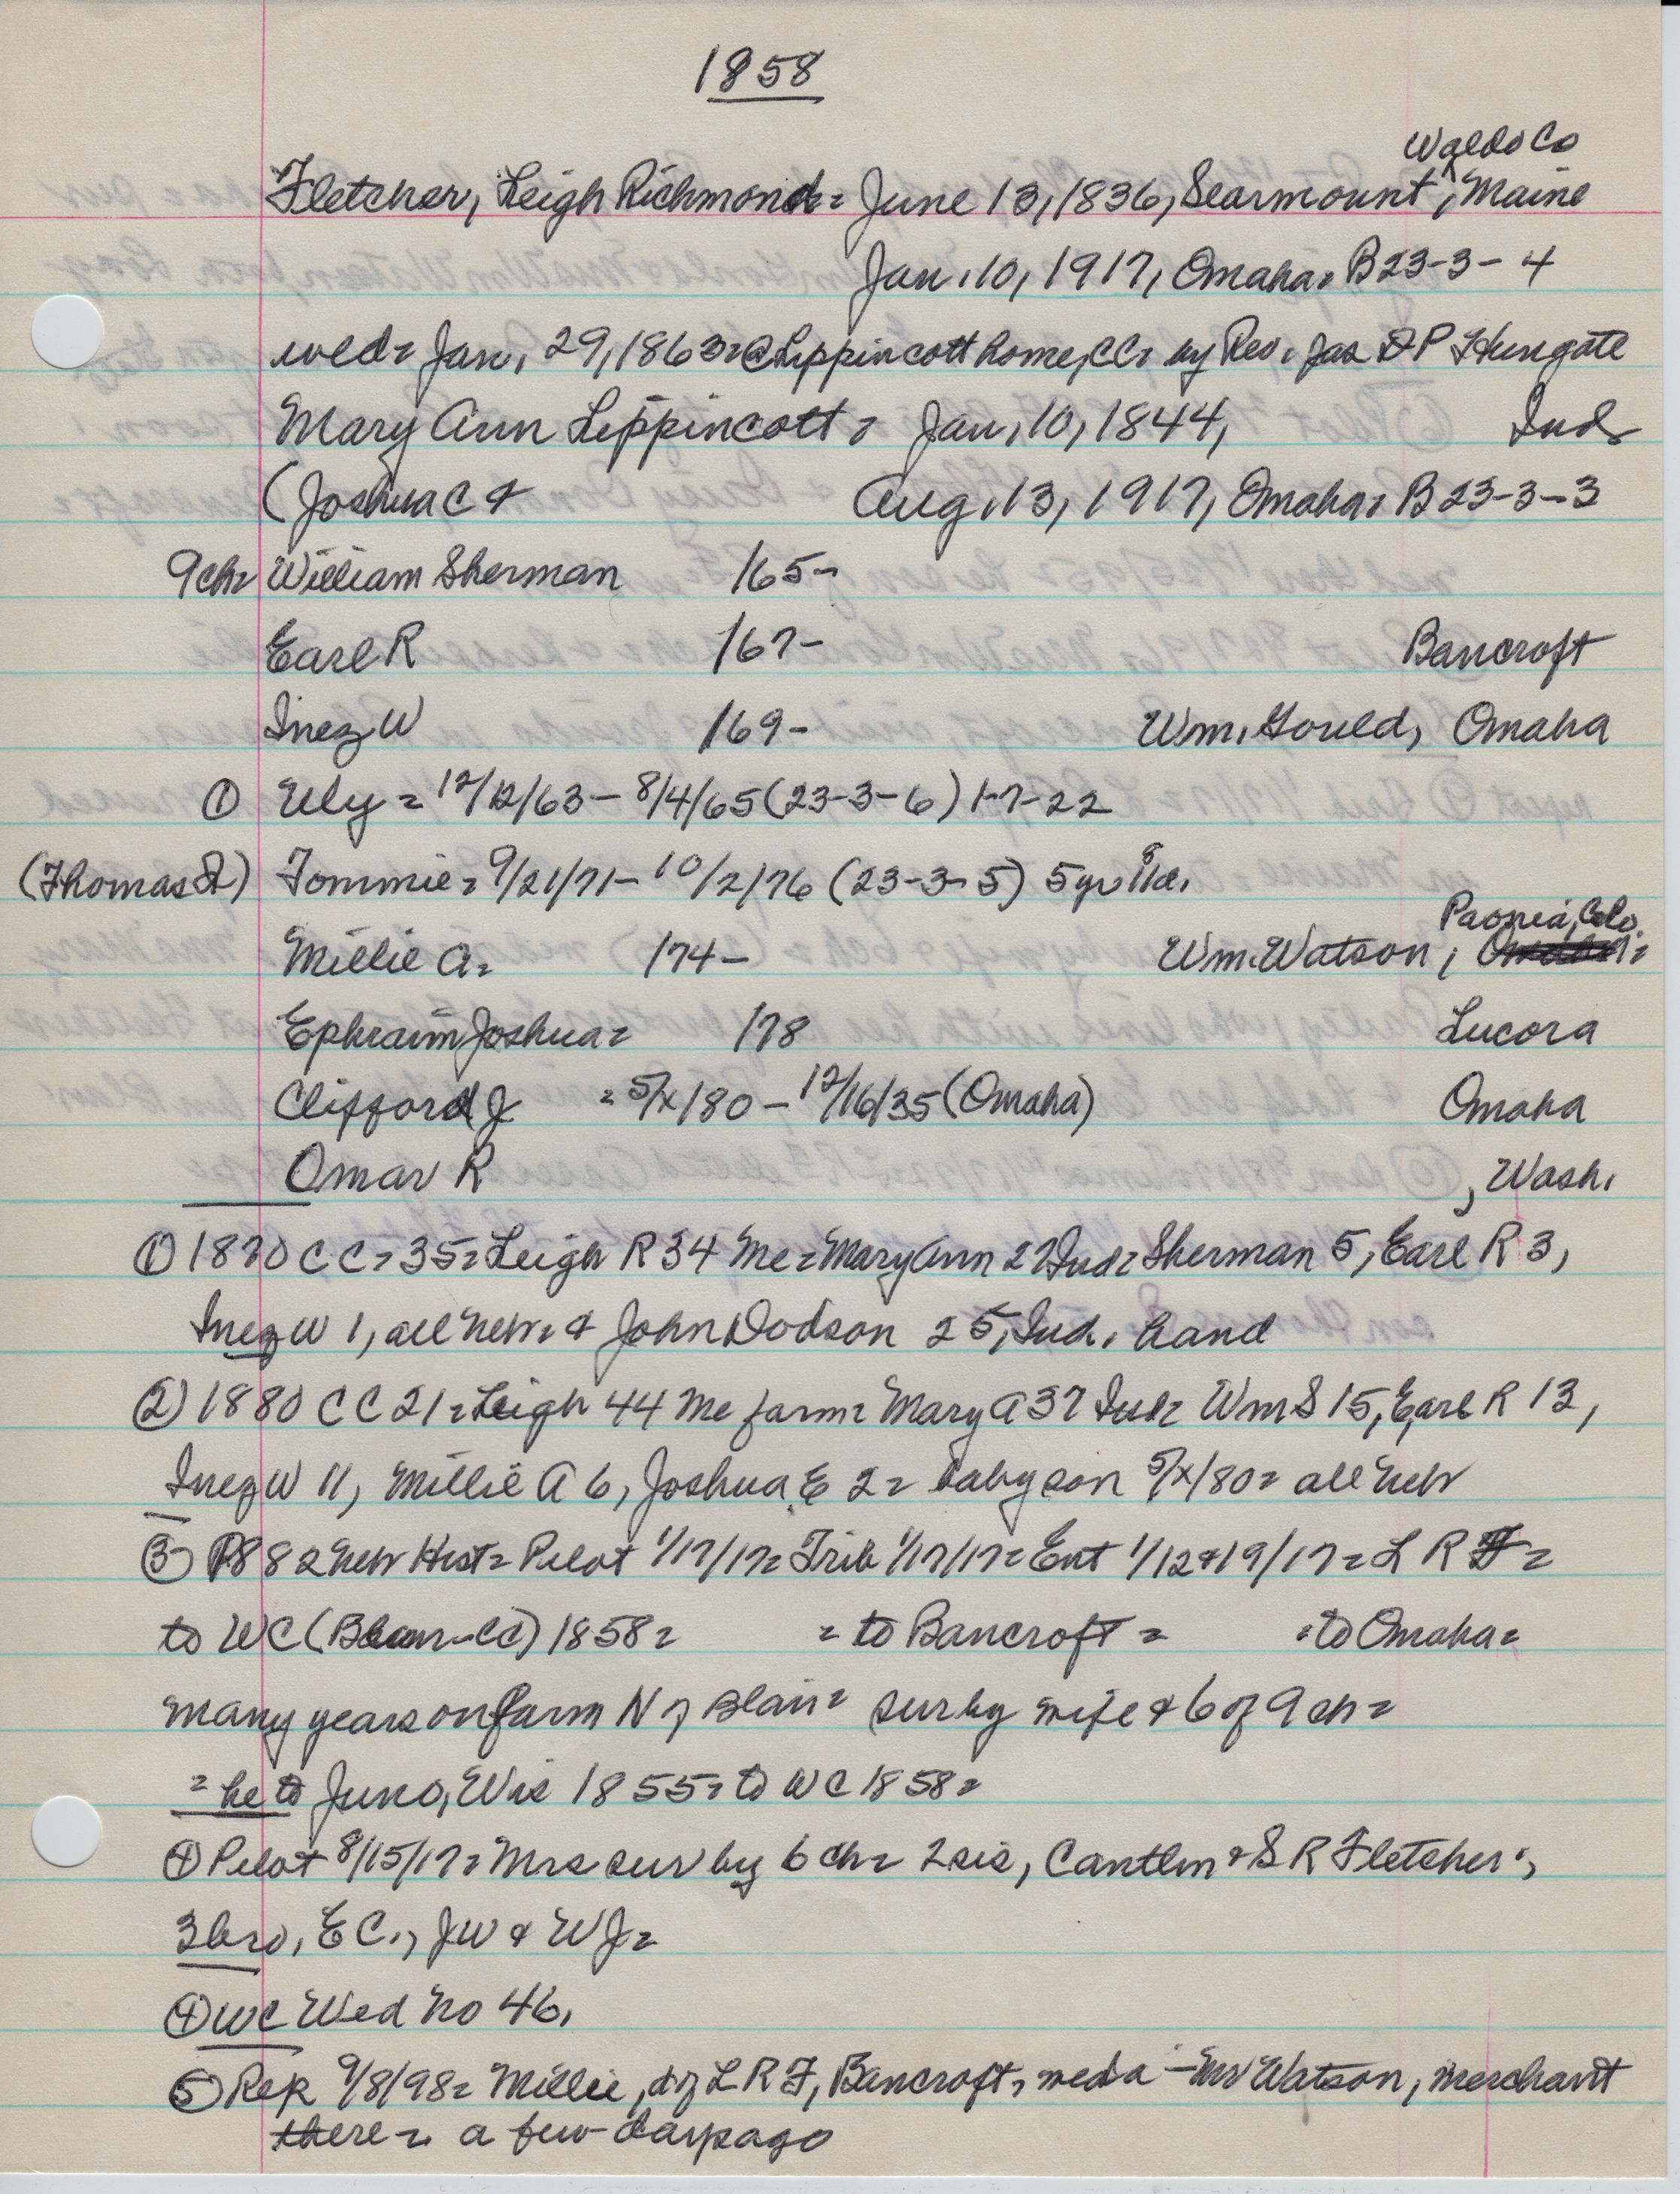 1858
Waldo Co
Fletcher, Leigh Richmond = June 13, 1836, Searmount, Maine
Jan. 10, 1917, Omaha = B 23-3-4
wed = Jan. 29, 1863 = @ Lippincott home, CC = by Rev. Jas P Hungate
Mary Ann Lippincott = Jan. 10, 1844, Ind
(Joshua C & Aug. 13, 1917, Omaha = B 23-3-3
9ch = William Sherman /65-
Earl R /67- Bancroft
Inez W /69- Wm. Gould, Omaha
① Uly = 12/12/63 - 8/4/65 (23-3-6) 1-7-22
(Thomas) Tommie = 9/21/71 - 10/2/76 (23-3-5) 5 yr
Paonia, Colo.
Millie A = /74- Wm. Watson,
Ephraim Joshua = /78 Lucora
Clifford J = 5/x/80 - 12/16/35 (Omaha) Omaha
Omar R , Wash.
① 1870 CC = 35 = Leigh R 34 Me = Mary Ann 27 Ind = Sherman 5, Earl R 3,
Inez W 1, all Nebr. & John Dodson 25, Ind. hand
② 1880 CC 21 = Leigh 44 Me farm = Mary A 37 Ind = Wm S 15, Earl R 13,
Inez W 11, Millie A 6, Joshua E 2 = baby son 5/x/80 = all Nebr
③ 1882 Nebr Hist = Pilot 1/17/17 = Trib 1/17/17 = Ent 1/12 & 19/17 = L R F =
to WC (Blair-CC) 1858 = = to Bancroft = = to Omaha =
many years on farm N of Blair = sur by wife & 6 of 9 ch =
= he to Juno, Wis 1855 = to WC 1858 =
④ Pilot 8/15/17 = Mrs sur by 6 ch = 2 sis, Cantlin & S R Fletcher;
3 bro, E C., J W & W J =
④ WC Wed No 46.
⑤ Rep 9/8/98 = Millie, d of L R F, Bancroft, wed a - Mr Watson, merchant
there = a few days ago